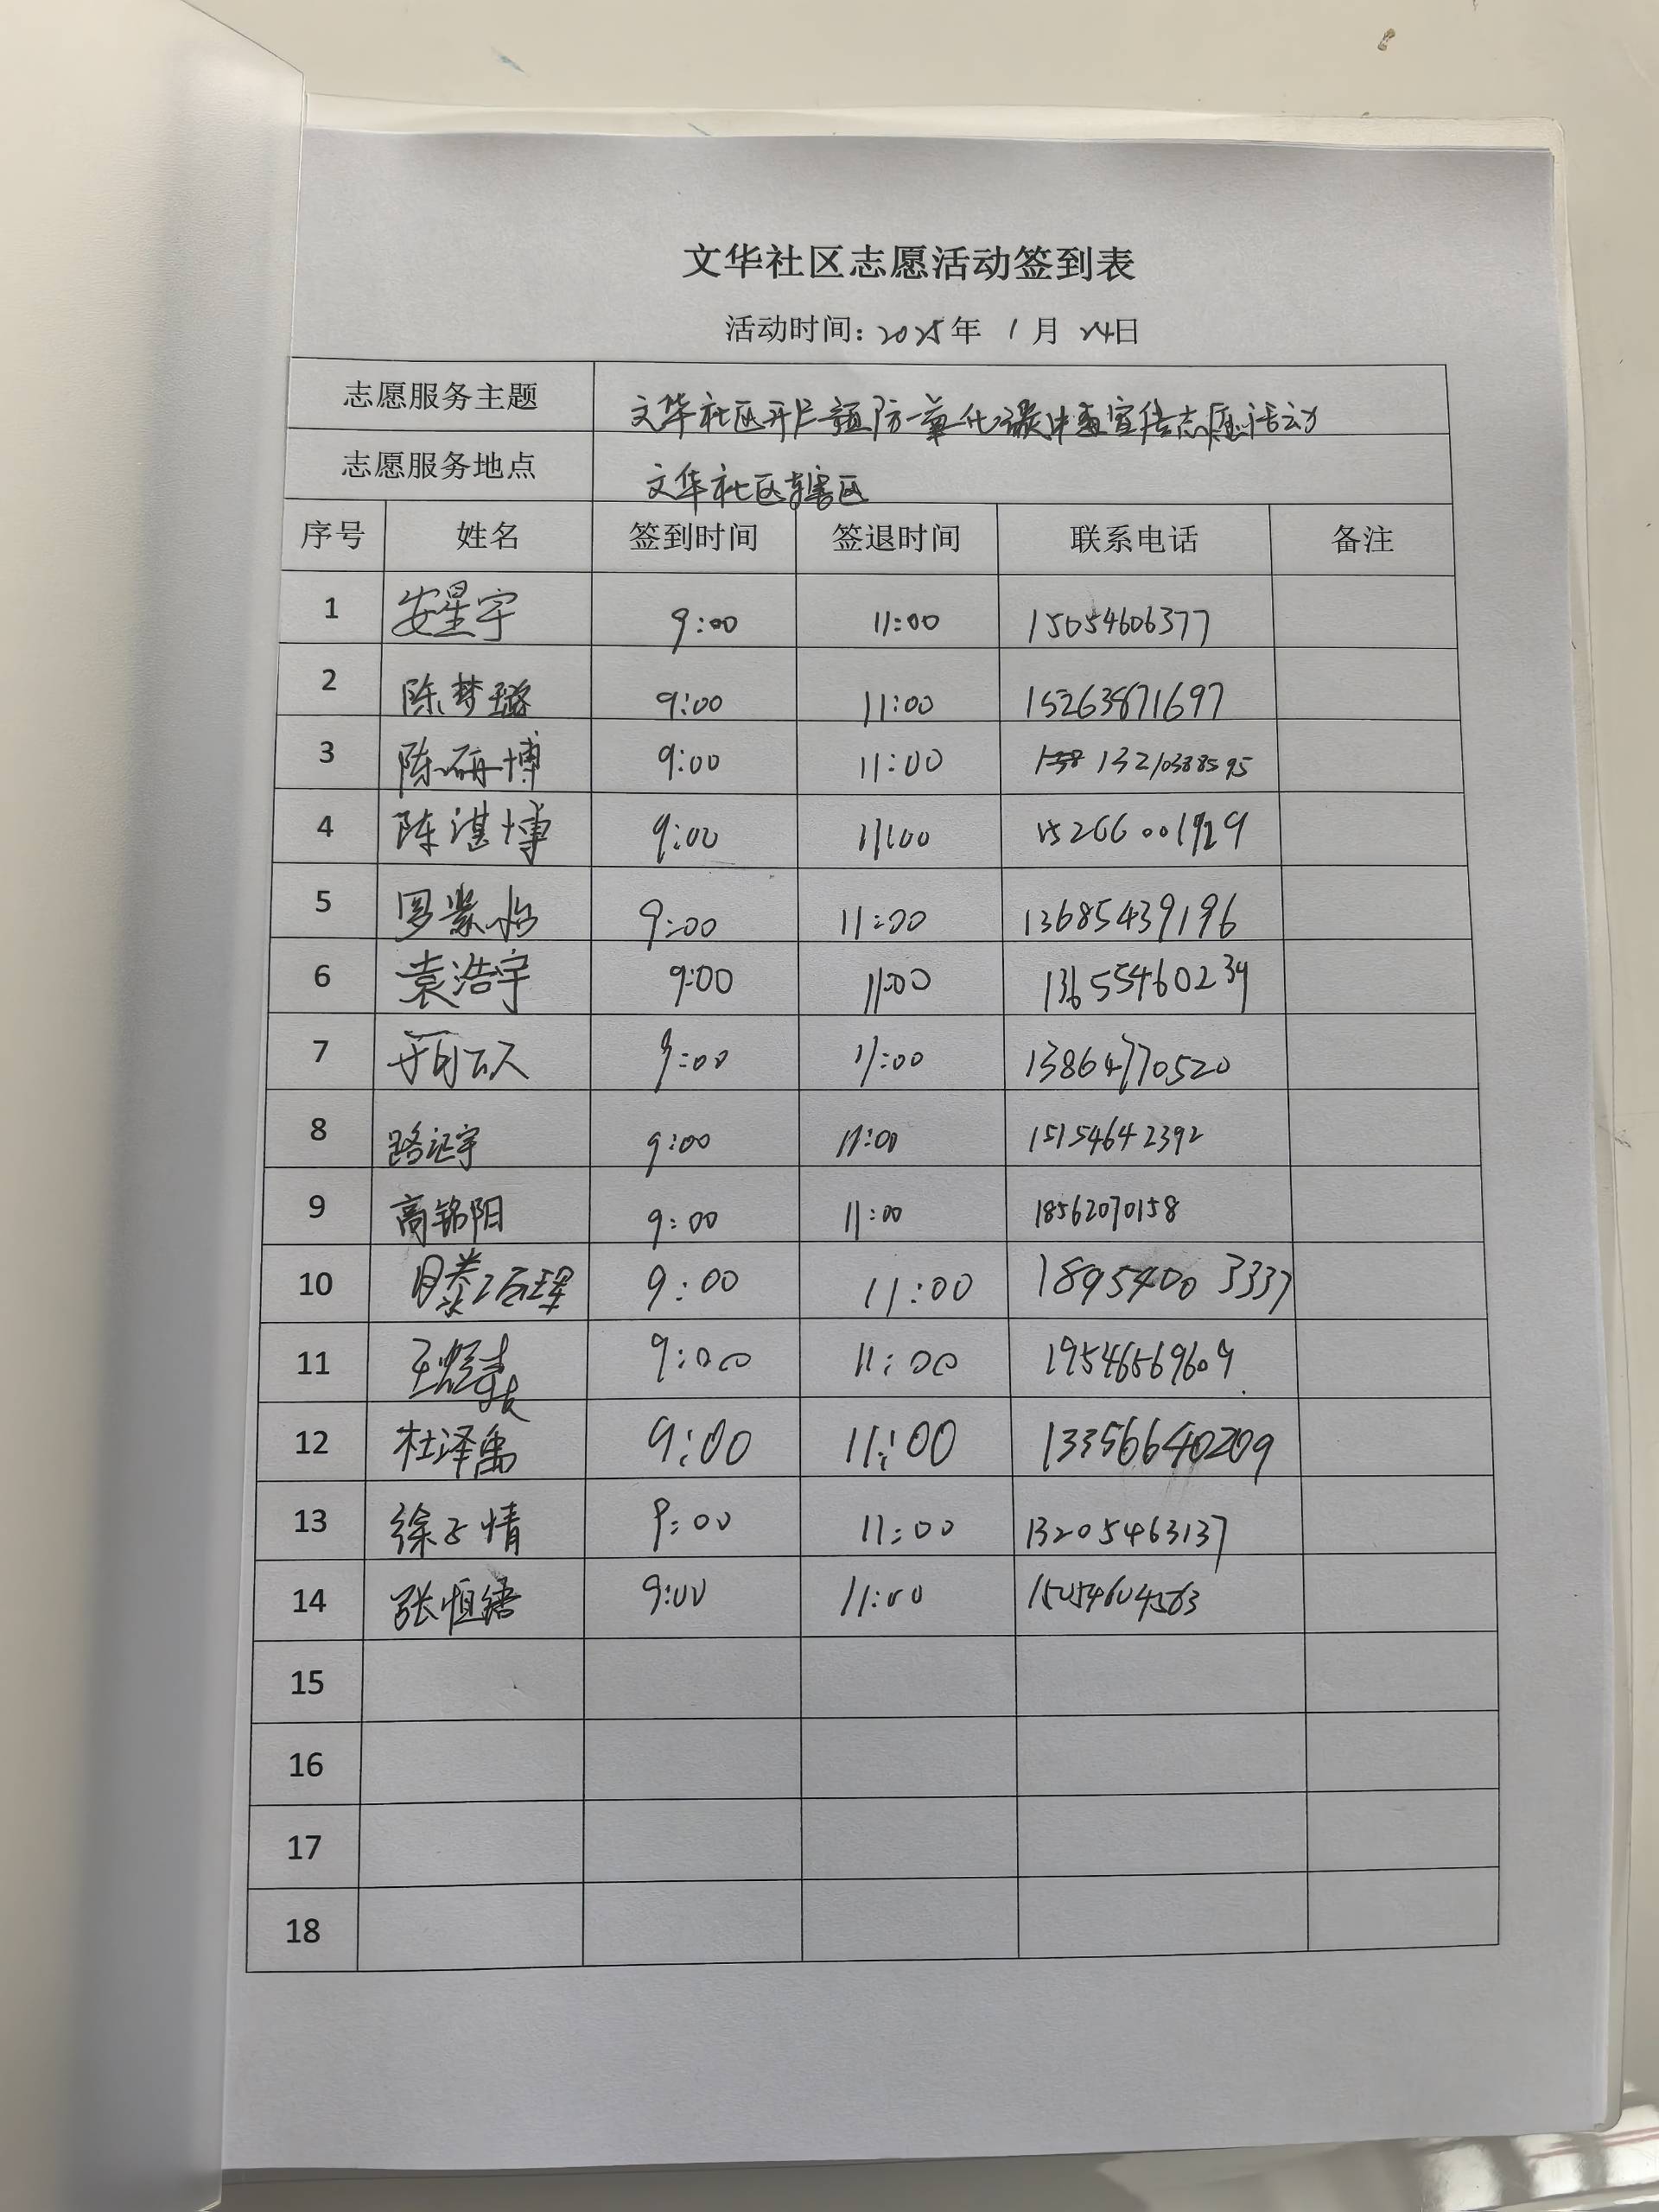 文华社区志愿活动签到表
活动时间：2025年 1月 24日
志愿服务主题 文华社区开展预防一氧化碳中毒宣传志愿活动
志愿服务地点 文华社区辖区
序号 姓名 签到时间 签退时间 联系电话 备注
1 安星宇 9:00 11:00 15054606377
2 陈梦璐 9:00 11:00 15263871697
3 陈硕博 9:00 11:00 13210388595
4 陈湛博 9:00 11:00 15266001929
5 罗紫怡 9:00 11:00 13685439196
6 袁浩宇 9:00 11:00 13655460234
7 9:00 11:00 13864770520
8 9:00 11:00 15154642392
9 高铭阳 9:00 11:00 18562070158
10 9:00 11:00 18954003337
11 9:00 11:00 19546569609
12 杜泽禹 9:00 11:00 13356640209
13 徐子情 9:00 11:00 13205463137
14 9:00 11:00 15054604563
15
16
17
18